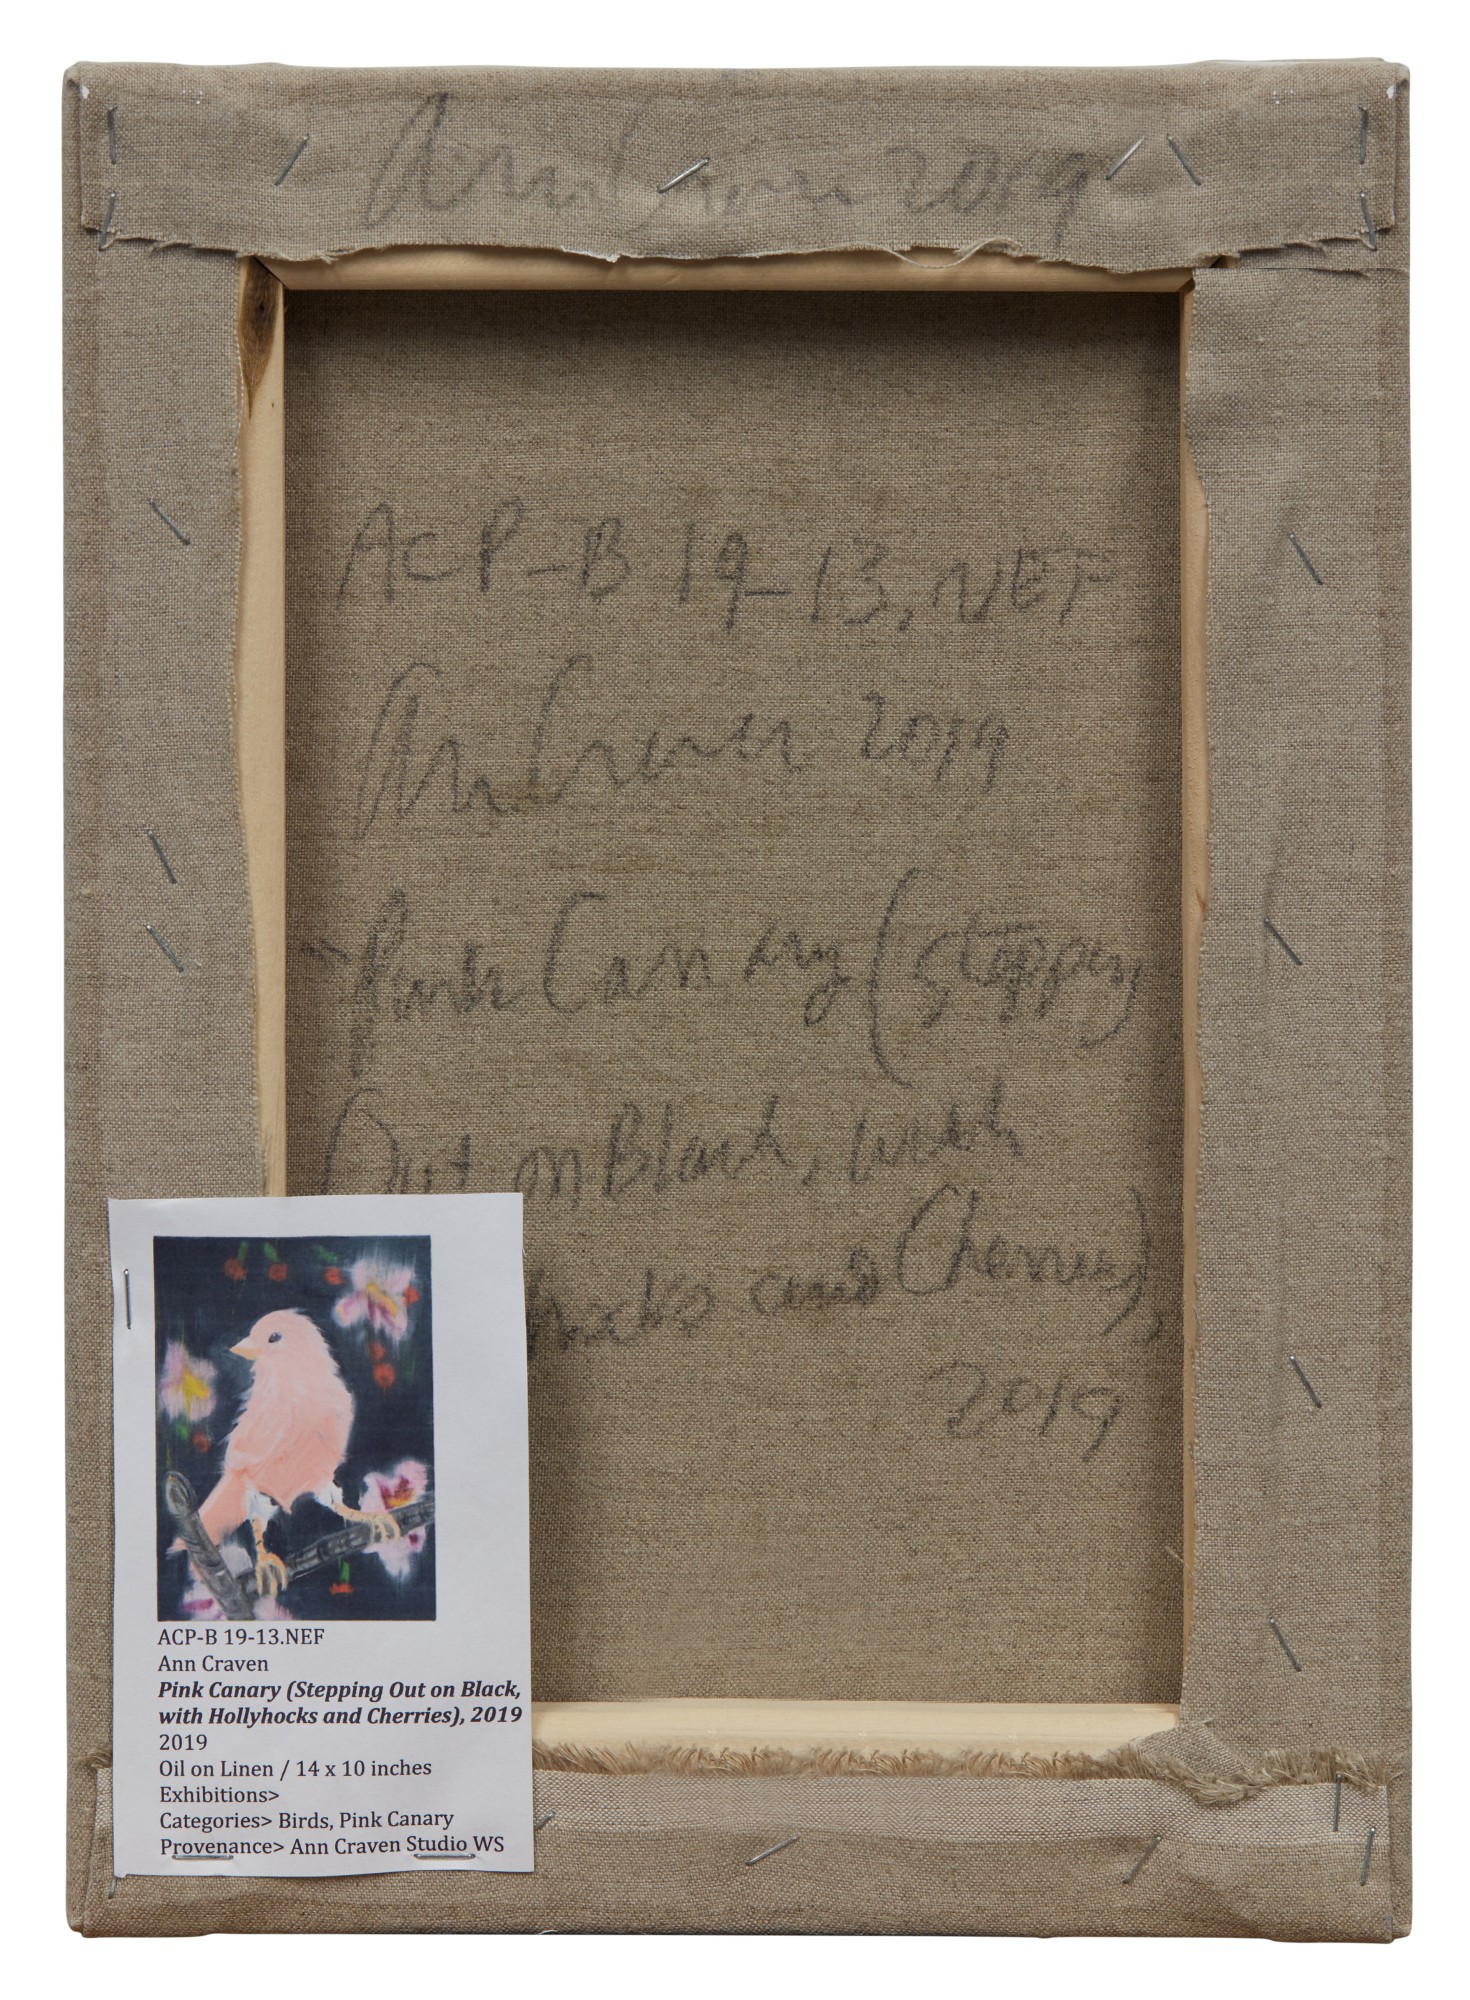 Ann Craven 2019
ACP-B 19-13.NEF
Ann Craven 2019
Pink Canary (Stepping
Out on Black, with
hocks and Cherries),
2019
ACP-B 19-13.NEF
Ann Craven
Pink Canary (Stepping Out on Black,
with Hollyhocks and Cherries), 2019
2019
Oil on Linen / 14 x 10 inches
Exhibitions>
Categories> Birds, Pink Canary
Provenance> Ann Craven Studio WS